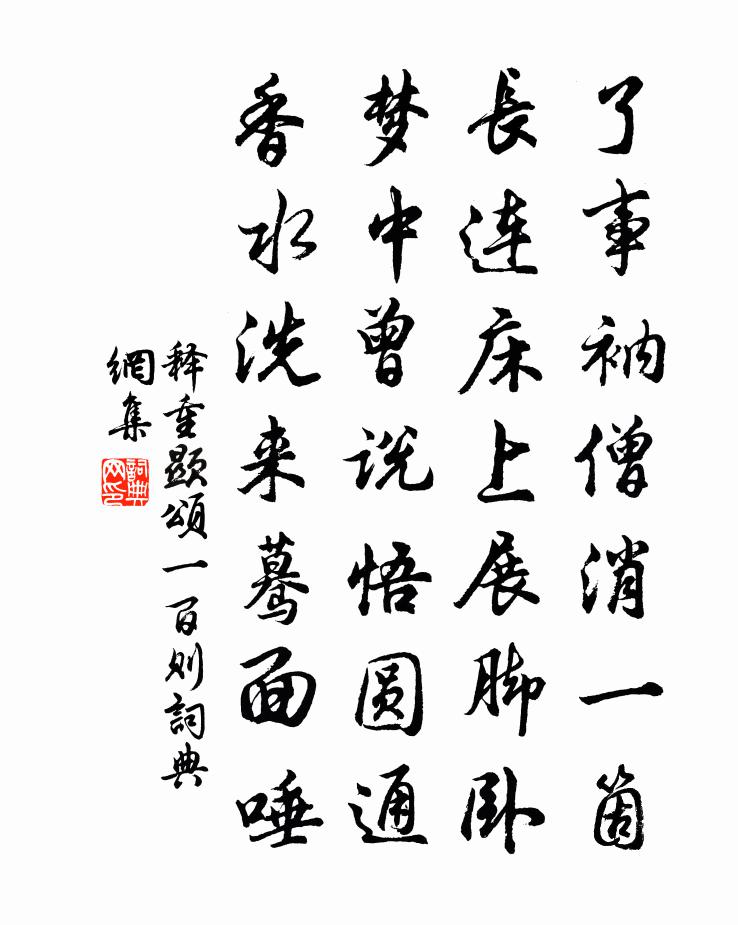 了事衲僧消一箇
長連床上展脚卧
梦中曾说悟圆通
香水洗来蓦面唾
释重顕頌一百则詞典
網集
詞典
网印